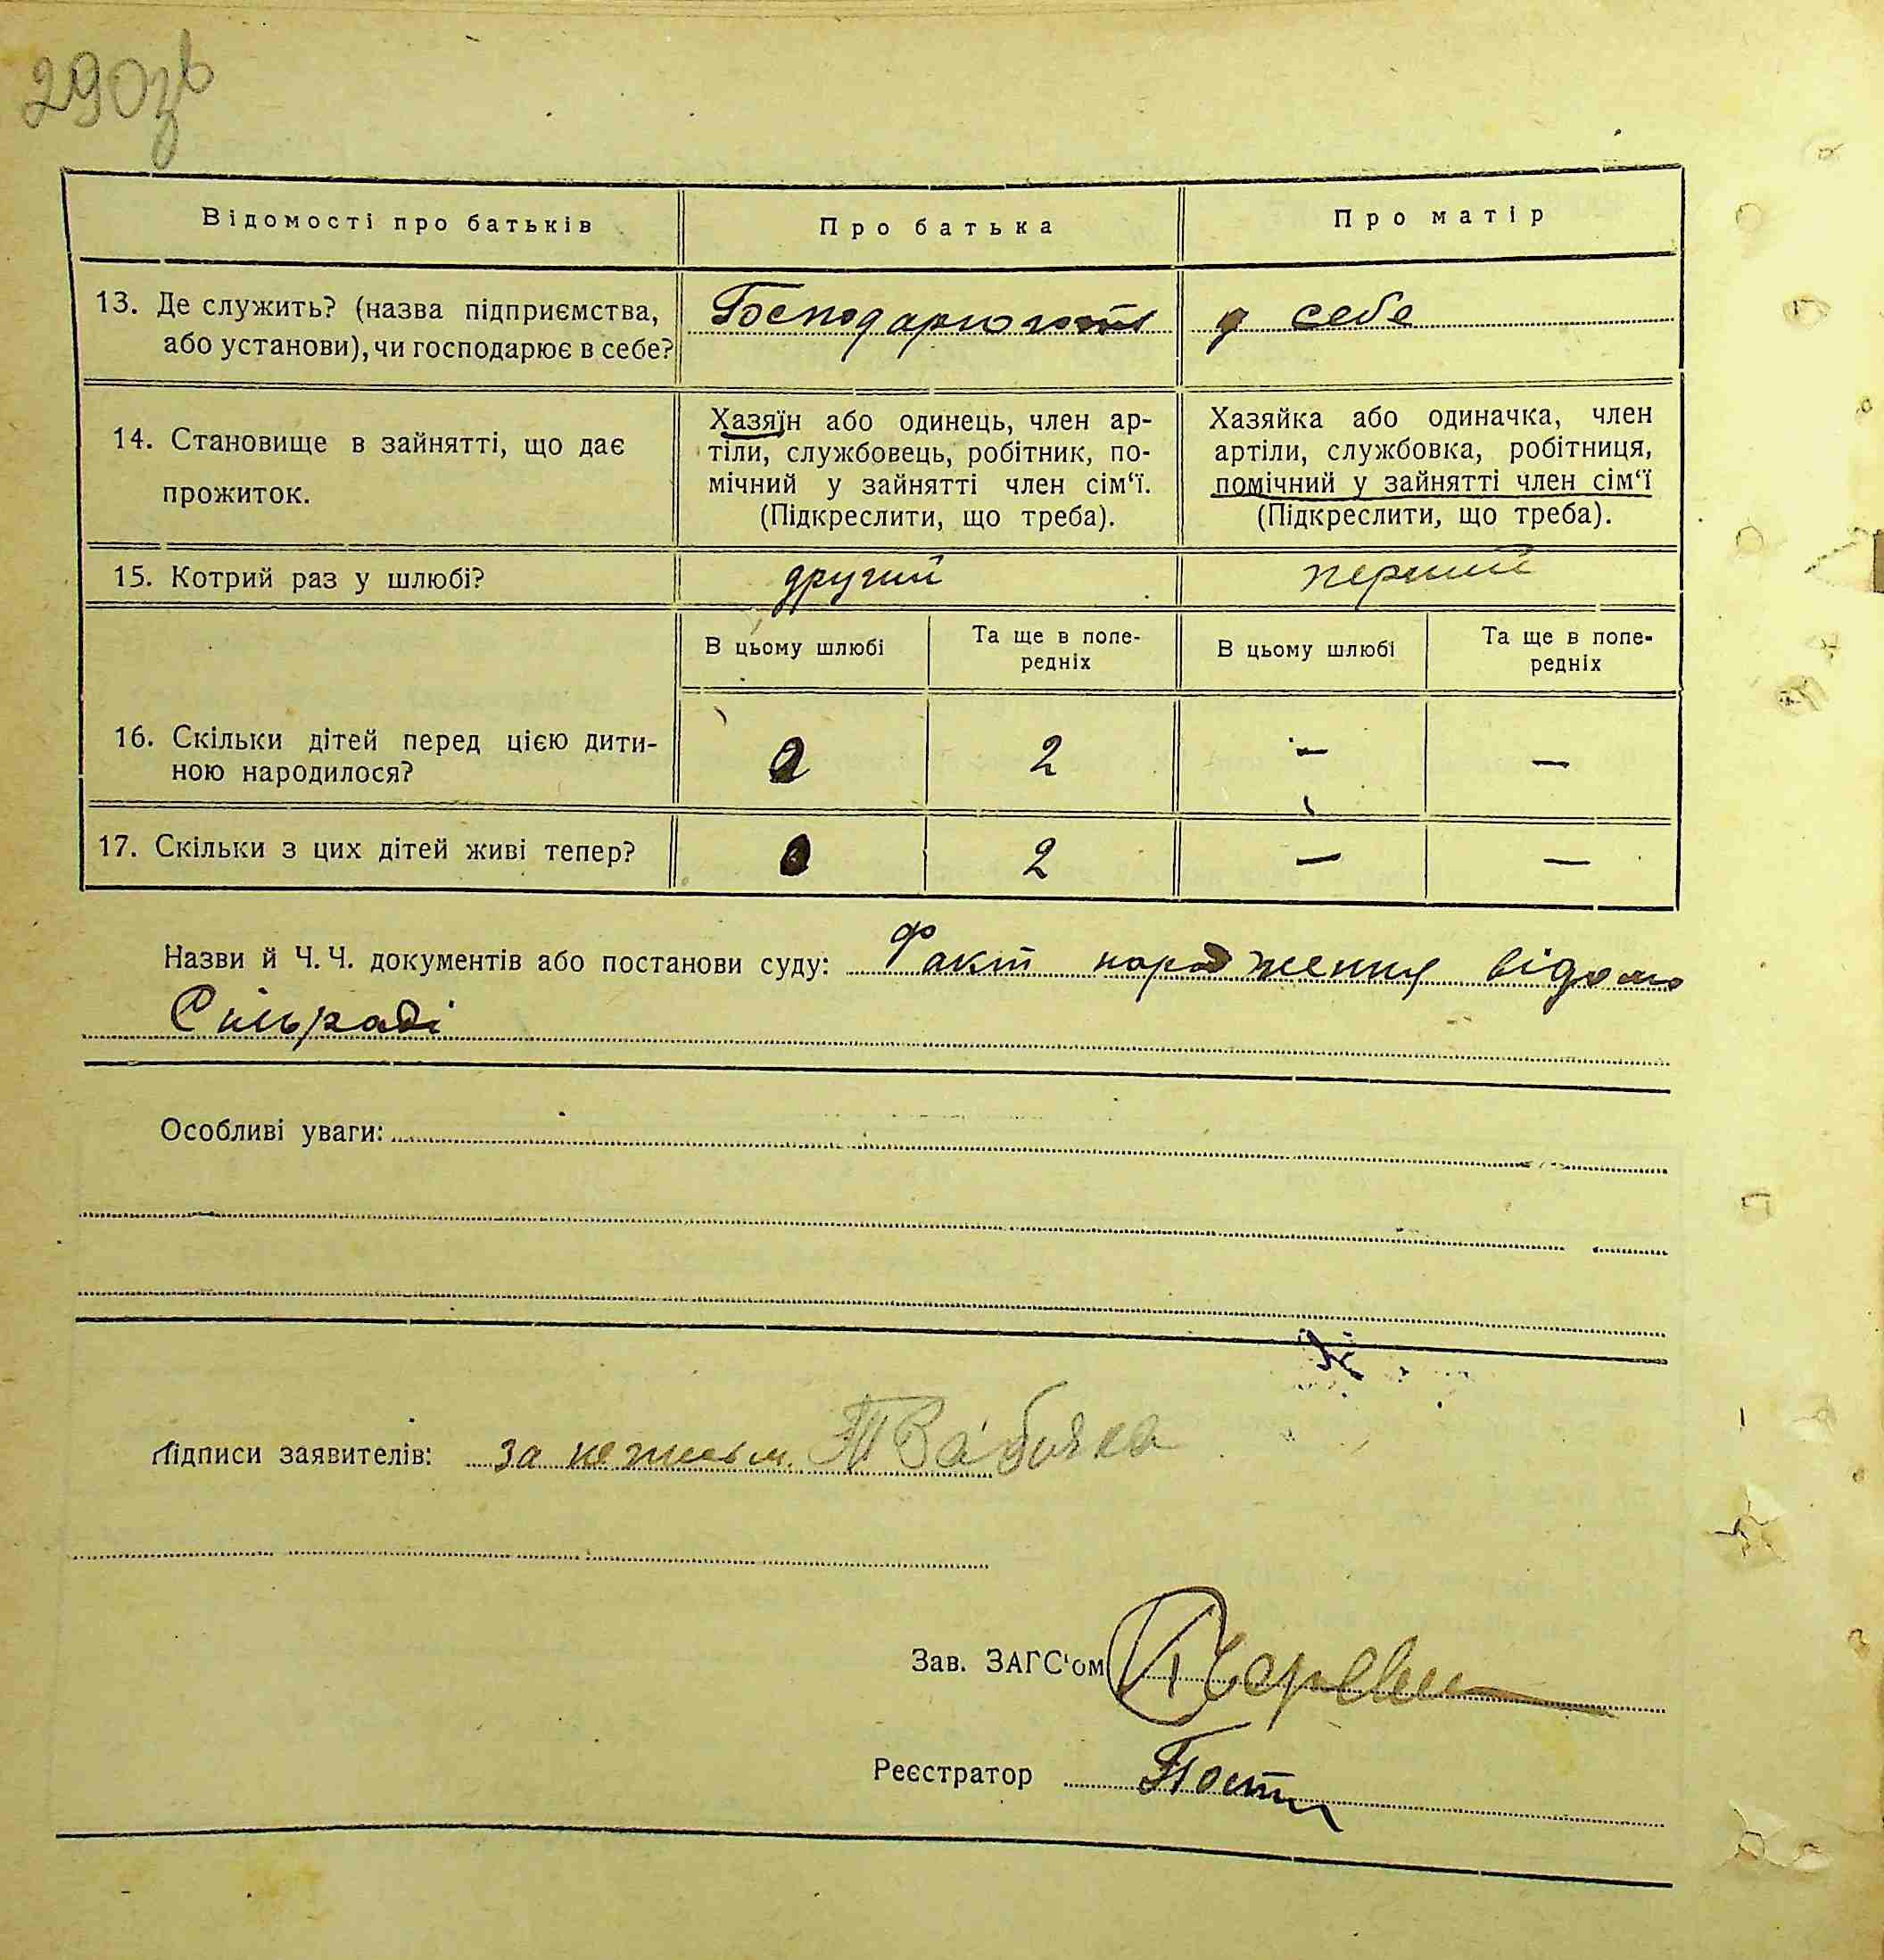 290зв
Відомості про батьків
Про батька
Про матір
13. Де служить? (назва підприємства,
або установи), чи господарює в себе?
Господарюють
у себе
14. Становище в зайнятті, що дає
прожиток.
Хазяїн або одинець, член ар-
тіли, службовець, робітник, по-
мічний у зайнятті член сім‘ї.
(Підкреслити, що треба).
Хазяйка або одиначка, член
артіли, службовка, робітниця,
помічний у зайнятті член сім‘ї
(Підкреслити, що треба).
15. Котрий раз у шлюбі?
другий
перший
В цьому шлюбі
Та ще в попе-
редніх
В цьому шлюбі
Та ще в попе-
редніх
16. Скільки дітей перед цією дити-
ною народилося?
0
2
—
—
17. Скільки з цих дітей живі тепер?
0
2
—
—
Назви й Ч. Ч. документів або постанови суду: Факт народження відомо
Сільраді
Особливі уваги:
Підписи заявителів: за
Зав. ЗАГС‘ом
Реєстратор